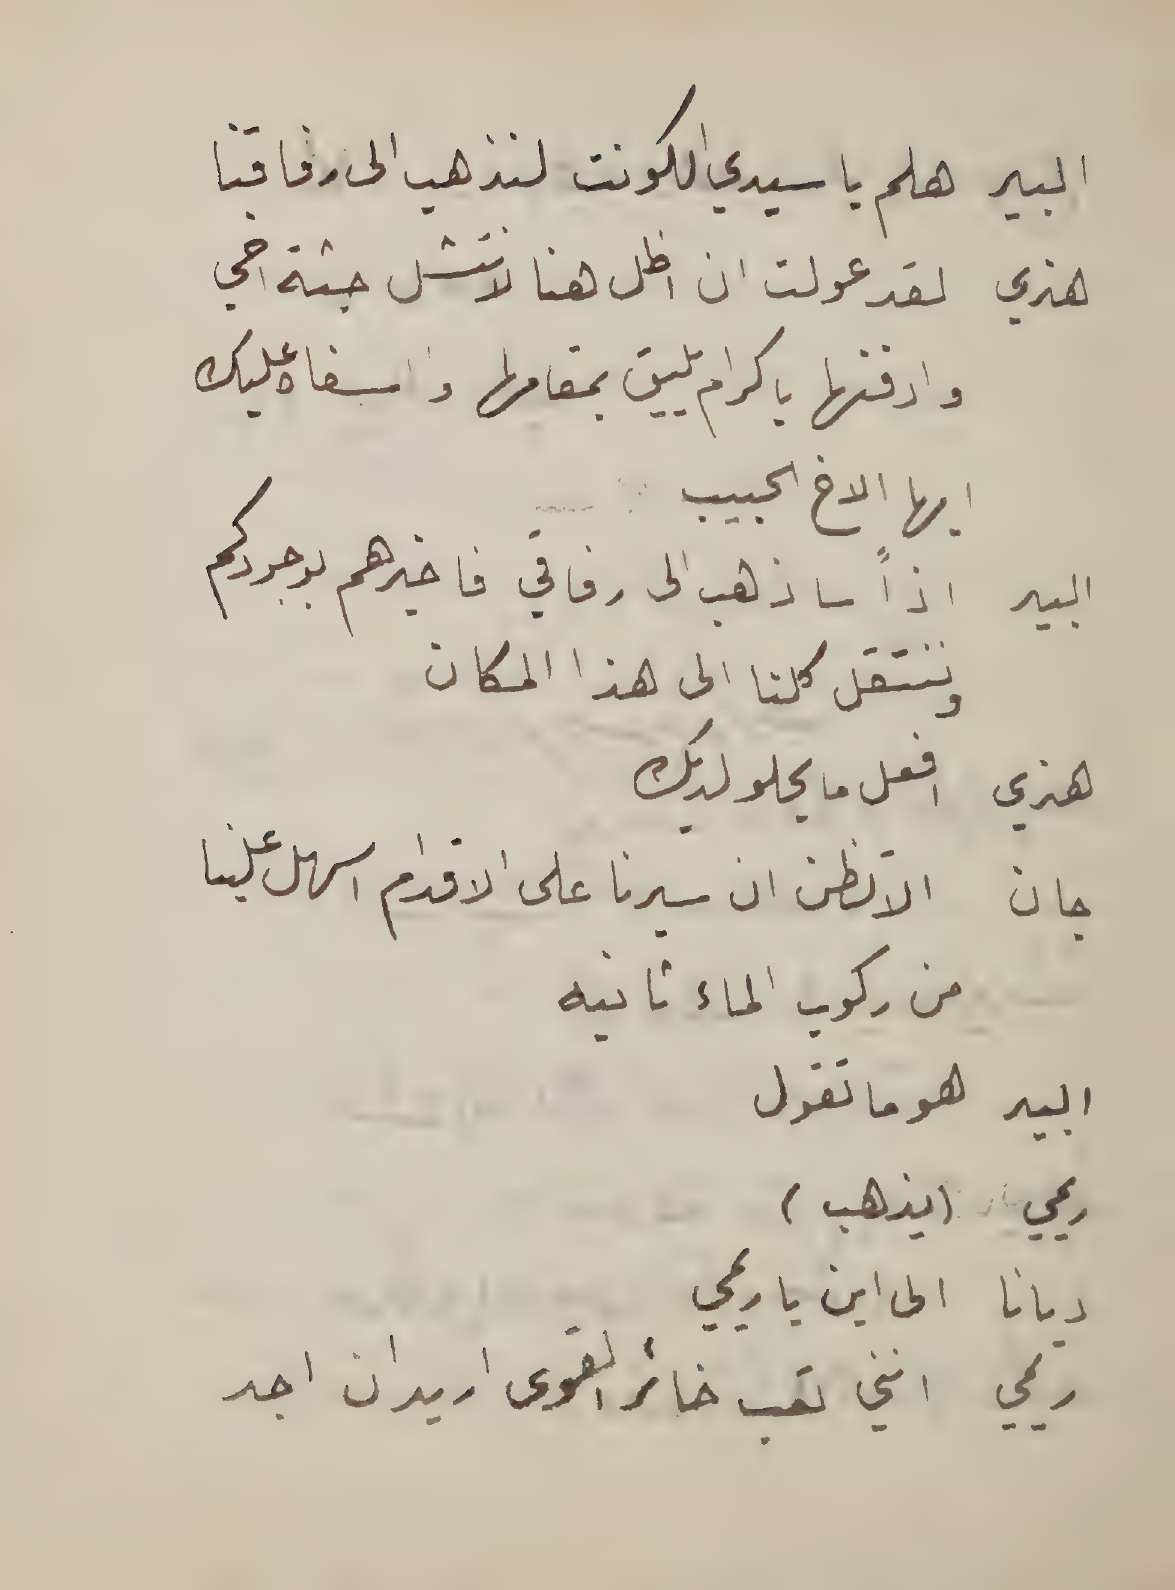 البير هلم يا سيدي الكونت لنذهب الى رفاقنا
هنري لقد عولت ان اظل هنا لانتشل جثة اخي
وادفنها باكرام يليق بمقامها وا اسفاه عليك
ايها الاخ الحبيب
البير اذاً ساذهب الى رفاقي فاخبرهم بوجودكم
وننتقل كلنا الى هذا المكان
هنري افعل ما يحلو لديك
جان الا تظن ان سيرنا على الاقدام اسهل علينا
من ركوب الماء ثانيه
البير هو ما تقول
ريمي (يذهب)
ديانا الى اين يا ريمي
ريمي انني تعب خائر القوى اريد ان اجد